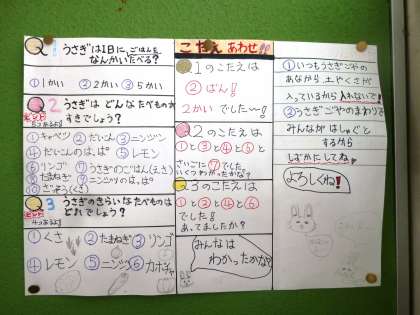 Q1 うさぎは1日に、ごはんを
なんかいたべる?
①1かい ②2かい ③5かい
Q2 うさぎは どんなたべものが
すきでしょう?
ヒント
5つあるよ!
①キャベツ ②だいこん ③ニンジン
④だいこんのは、ぱ。 ⑤レモン
⑥リンゴ ⑦うさぎのごはん(えさ)
⑧たまねぎ ⑨ニンジンのは、ぱ。
⑩ざっそう(くさ)
Q3 うさぎのきらいなたべものは
どれでしょう?
ヒント
4つあるよ!
①くさ ②たまねぎ ③リンゴ
④レモン ⑤ニンジン ⑥カボチャ
こたえあわせ!!
Q1のこたえは
②ばん!
2かいでした〜!!
Q2のこたえは
①と③と④と⑥と
さいごに⑦でした。
いくつわかったかな?
Q3のこたえは
①と②と④と⑥と
でした!
あってましたか?
みんなは
わかったかな?
①いつもうさぎごやの
あなから、土やくさが
入っているから入れないで!
②うさぎごやのまわりで
みんなが はしゃぐと
するから
しずかにしてね!
よろしくね!